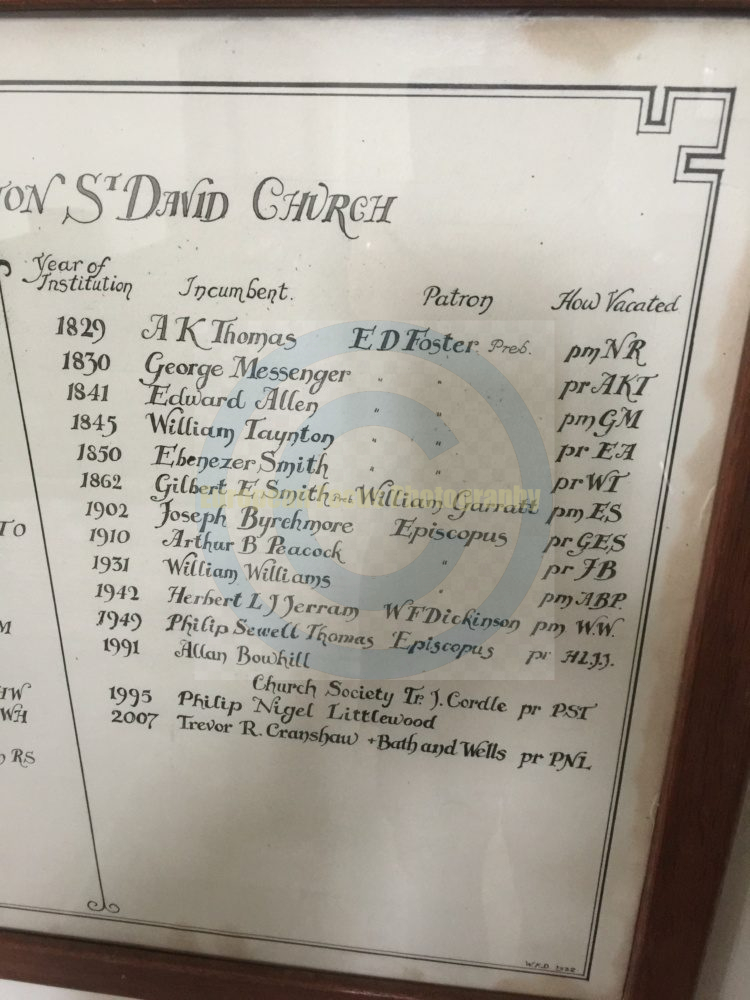 ON ST DAVID CHURCH
Year of Institution Incumbent. Patron How Vacated
1829 A K Thomas E D Foster. Preb. pm NR
1830 George Messenger " " pr AKT
1841 Edward Allen " " pm GM
1845 William Taynton " " pr EA
1850 Ebenezer Smith " " pr WT
1862 Gilbert E Smith Preb. William Garratt pm ES
1902 Joseph Byrchmore Episcopus pr GES
1910 Arthur B Peacock " pr JB
1931 William Williams " pm ABP.
1942 Herbert L J Jerram W F Dickinson pm W.W.
1949 Philip Sewell Thomas Episcopus pr HLJJ.
1991 Allan Bowhill
Church Society Tr. J. Cordle pr PST
1995 Philip Nigel Littlewood
2007 Trevor R. Cranshaw +Bath and Wells pr PNL
TO
M
HW
WH
RS
W.K.D.
Photography